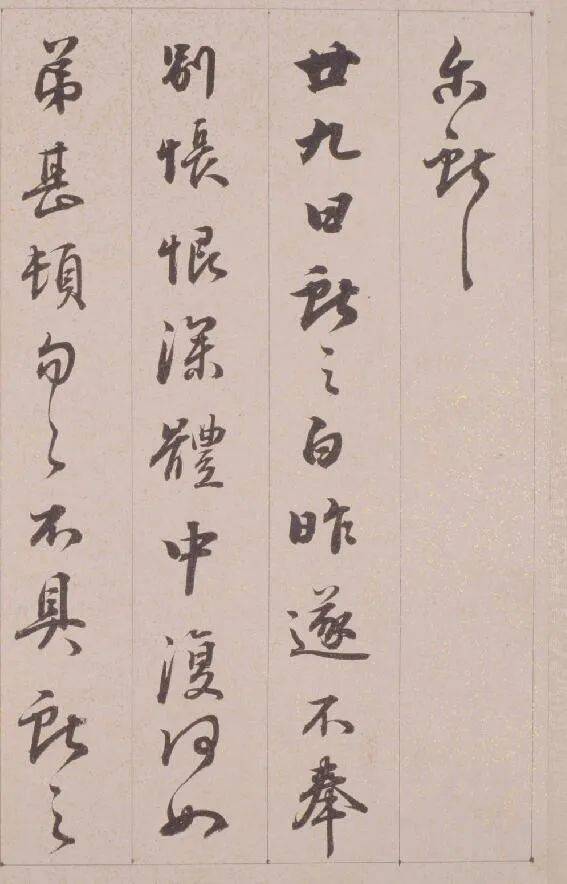 尒獻之
廿九日獻之白昨遂不奉
別悵恨深體中復何如
弟甚頓匆々不具獻之